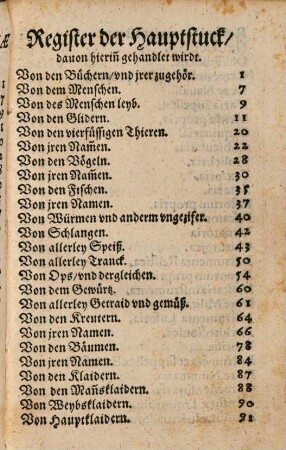 Register der Hauptstuck/
dauon hieriñ gehandlet wirdt.
Von den Büchern/vnd jrer zugehör. 1
Von dem Menschen. 7
Von des Menschen leyb. 9
Von den Glidern. 11
Von den vierfüssigen Thieren. 20
Von jren Nam̃en. 22
Von den Vögeln. 28
Von jren Nam̃en. 30
Von den Fischen. 35
Von jren Namen. 37
Von Würmen vnd anderm vngezifer. 40
Von Schlangen. 42
Von allerley Speiß. 43
Von allerley Tranck. 50
Von Ops/vnd dergleichen. 54
Von dem Gewürtz. 60
Von allerley Getraid vnd gemüß. 61
Von den Kreutern. 64
Von jren Namen. 66
Von den Bäumen. 78
Von jren Namen. 84
Von den Klaidern. 87
Von den Mañsklaidern. 88
Von Weybsklaidern. 90
Von Hauptklaidern. 91